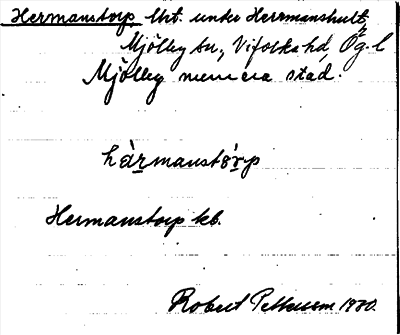 Hermanstorp Utt. under Herrmanshult,
Mjölby sn, Vifolka hd, Ög. l
Mjölby numera stad.
hàrmanstórp
Hermanstorp kb.
Robert Pettersson 1930.